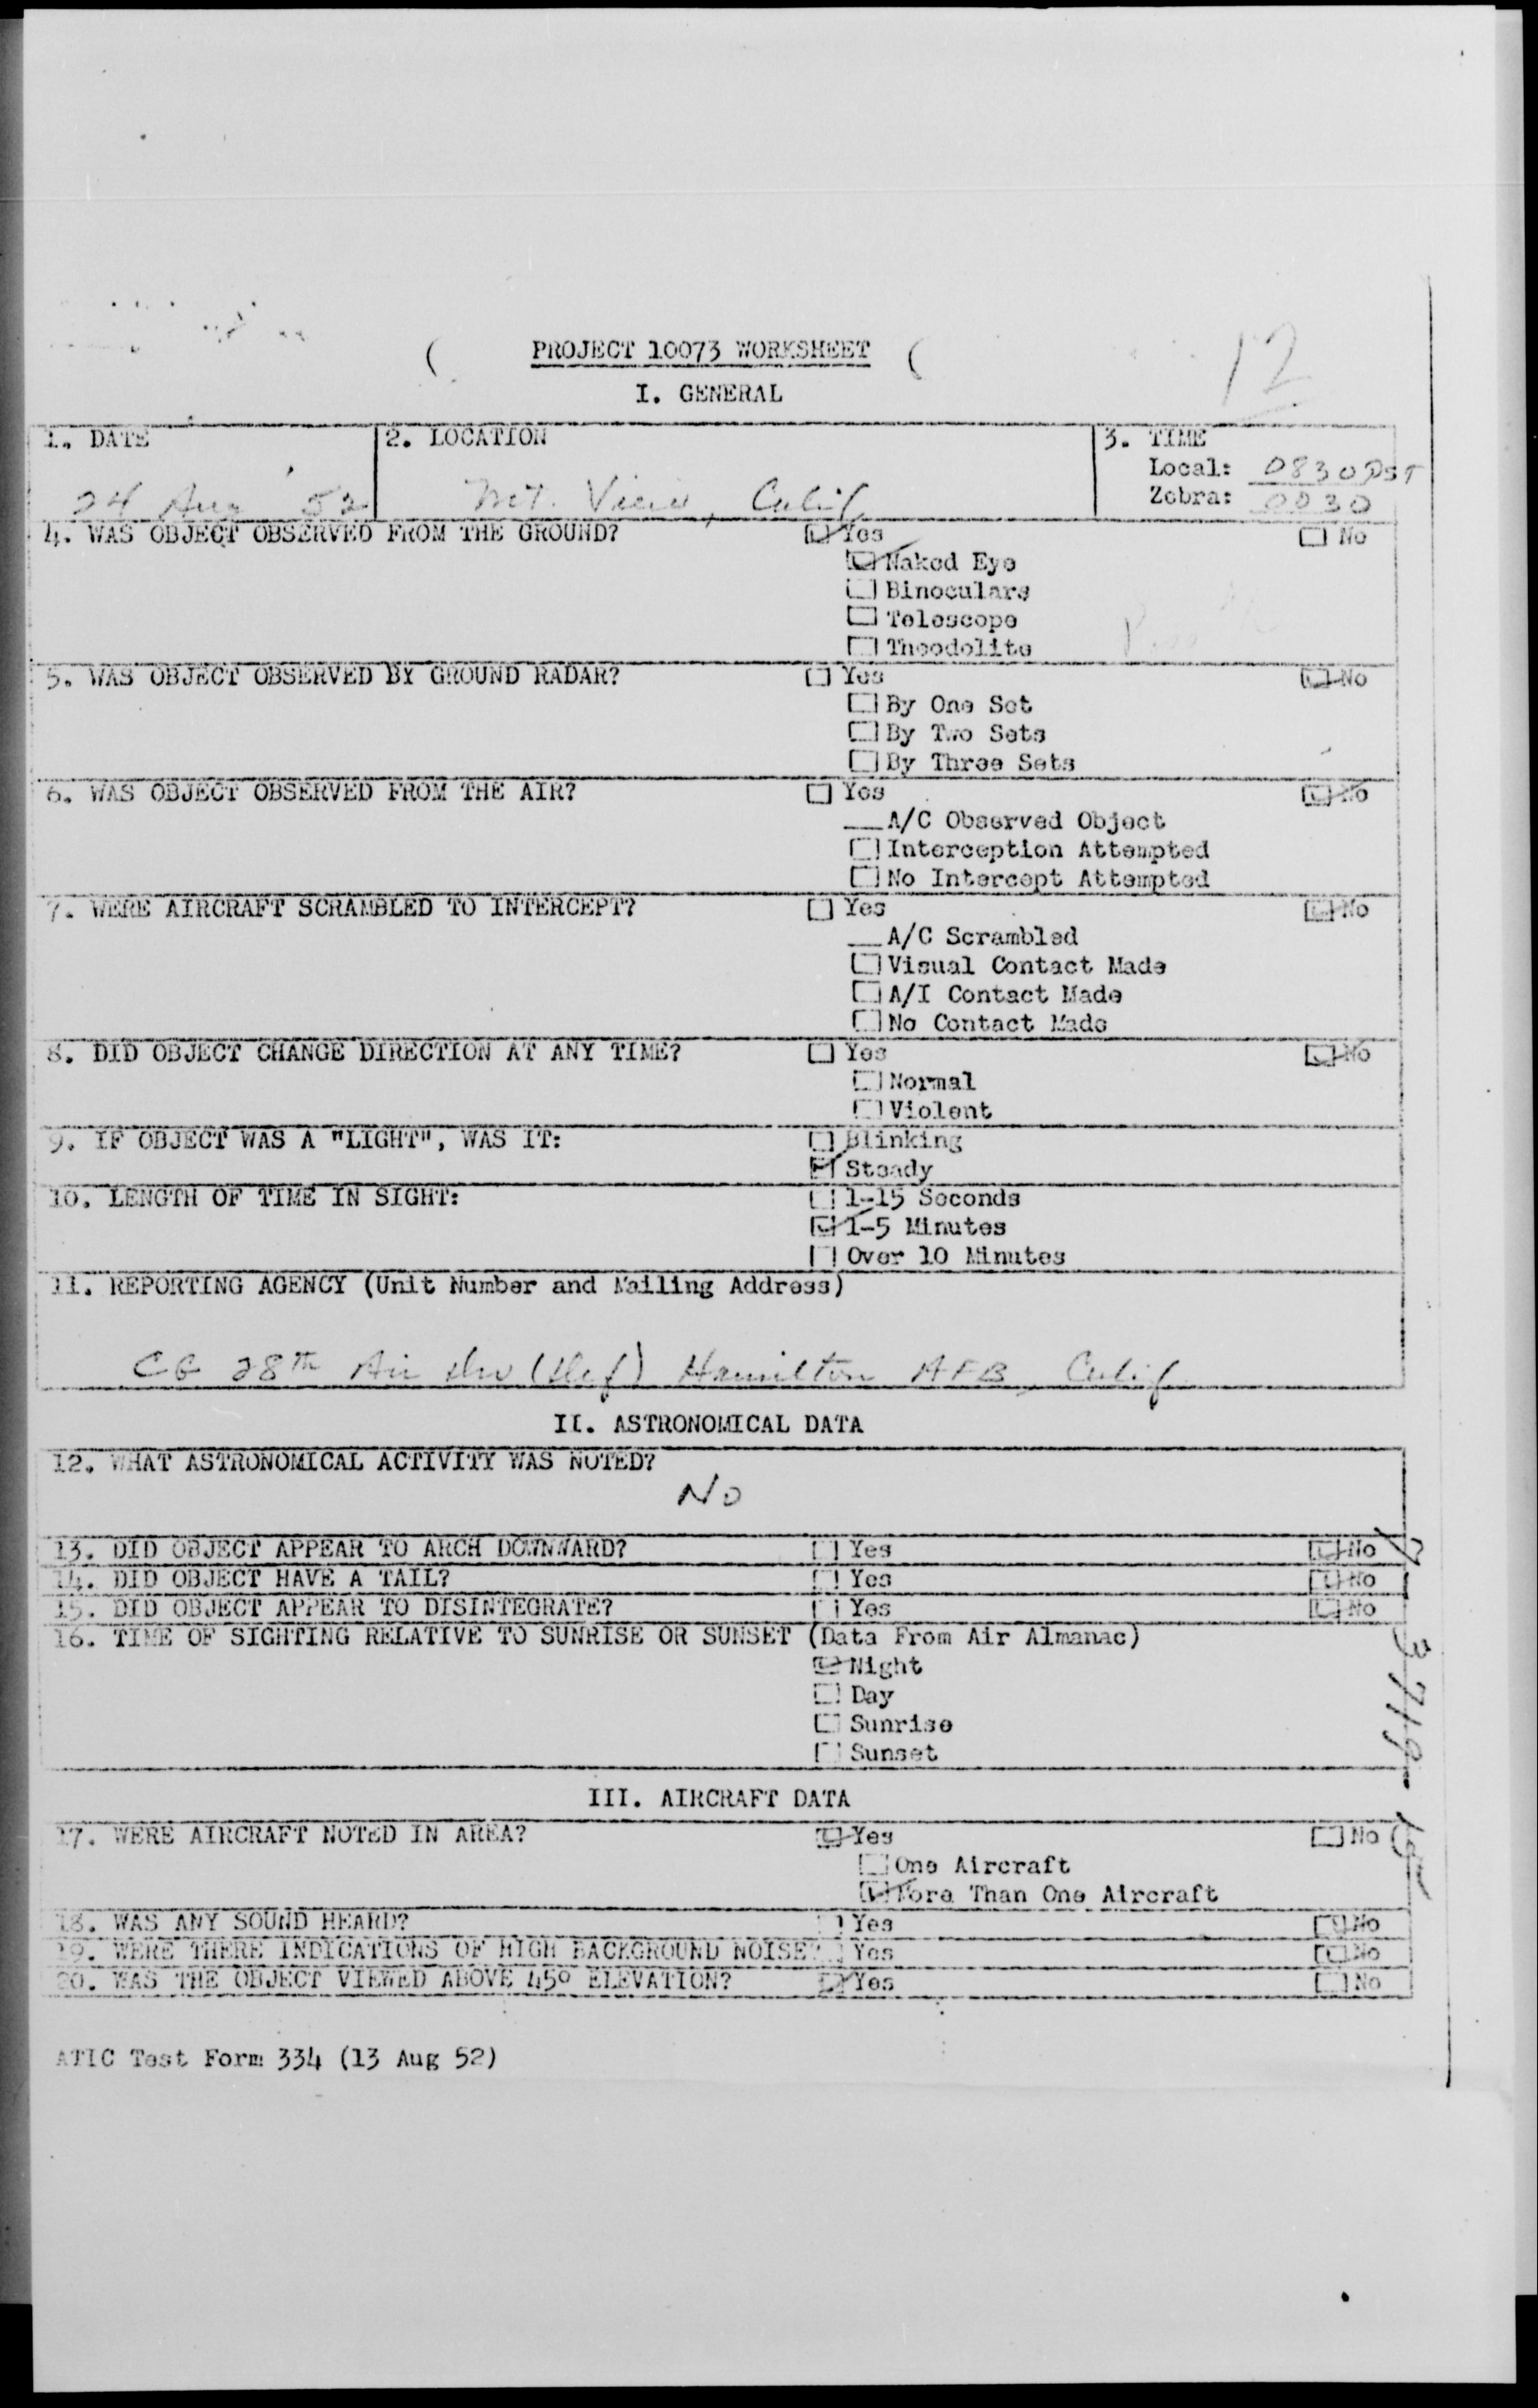 PROJECT 10073 WORKSHEET
12
I. GENERAL
1. DATE
24 Aug 52
2. LOCATION
Mt. View, Calif
3. TIME
Local: 0830 PST
Zebra: 0030
4. WAS OBJECT OBSERVED FROM THE GROUND? Yes No
Naked Eye
Binoculars
Telescope
Theodolite
5. WAS OBJECT OBSERVED BY GROUND RADAR? Yes No
By One Set
By Two Sets
By Three Sets
6. WAS OBJECT OBSERVED FROM THE AIR? Yes No
A/C Observed Object
Interception Attempted
No Intercept Attempted
7. WERE AIRCRAFT SCRAMBLED TO INTERCEPT? Yes No
A/C Scrambled
Visual Contact Made
A/I Contact Made
No Contact Made
8. DID OBJECT CHANGE DIRECTION AT ANY TIME? Yes No
Normal
Violent
9. IF OBJECT WAS A "LIGHT", WAS IT: Blinking
Steady
10. LENGTH OF TIME IN SIGHT: 1-15 Seconds
1-5 Minutes
Over 10 Minutes
11. REPORTING AGENCY (Unit Number and Mailing Address)
CG 28th Air Div (Def) Hamilton AFB, Calif
II. ASTRONOMICAL DATA
12. WHAT ASTRONOMICAL ACTIVITY WAS NOTED?
No
13. DID OBJECT APPEAR TO ARCH DOWNWARD? Yes No
14. DID OBJECT HAVE A TAIL? Yes No
15. DID OBJECT APPEAR TO DISINTEGRATE? Yes No
16. TIME OF SIGHTING RELATIVE TO SUNRISE OR SUNSET (Data From Air Almanac)
Night
Day
Sunrise
Sunset
III. AIRCRAFT DATA
17. WERE AIRCRAFT NOTED IN AREA? Yes No
One Aircraft
More Than One Aircraft
18. WAS ANY SOUND HEARD? Yes No
19. WERE THERE INDICATIONS OF HIGH BACKGROUND NOISE? Yes No
20. WAS THE OBJECT VIEWED ABOVE 45° ELEVATION? Yes No
ATIC Test Form 334 (13 Aug 52)